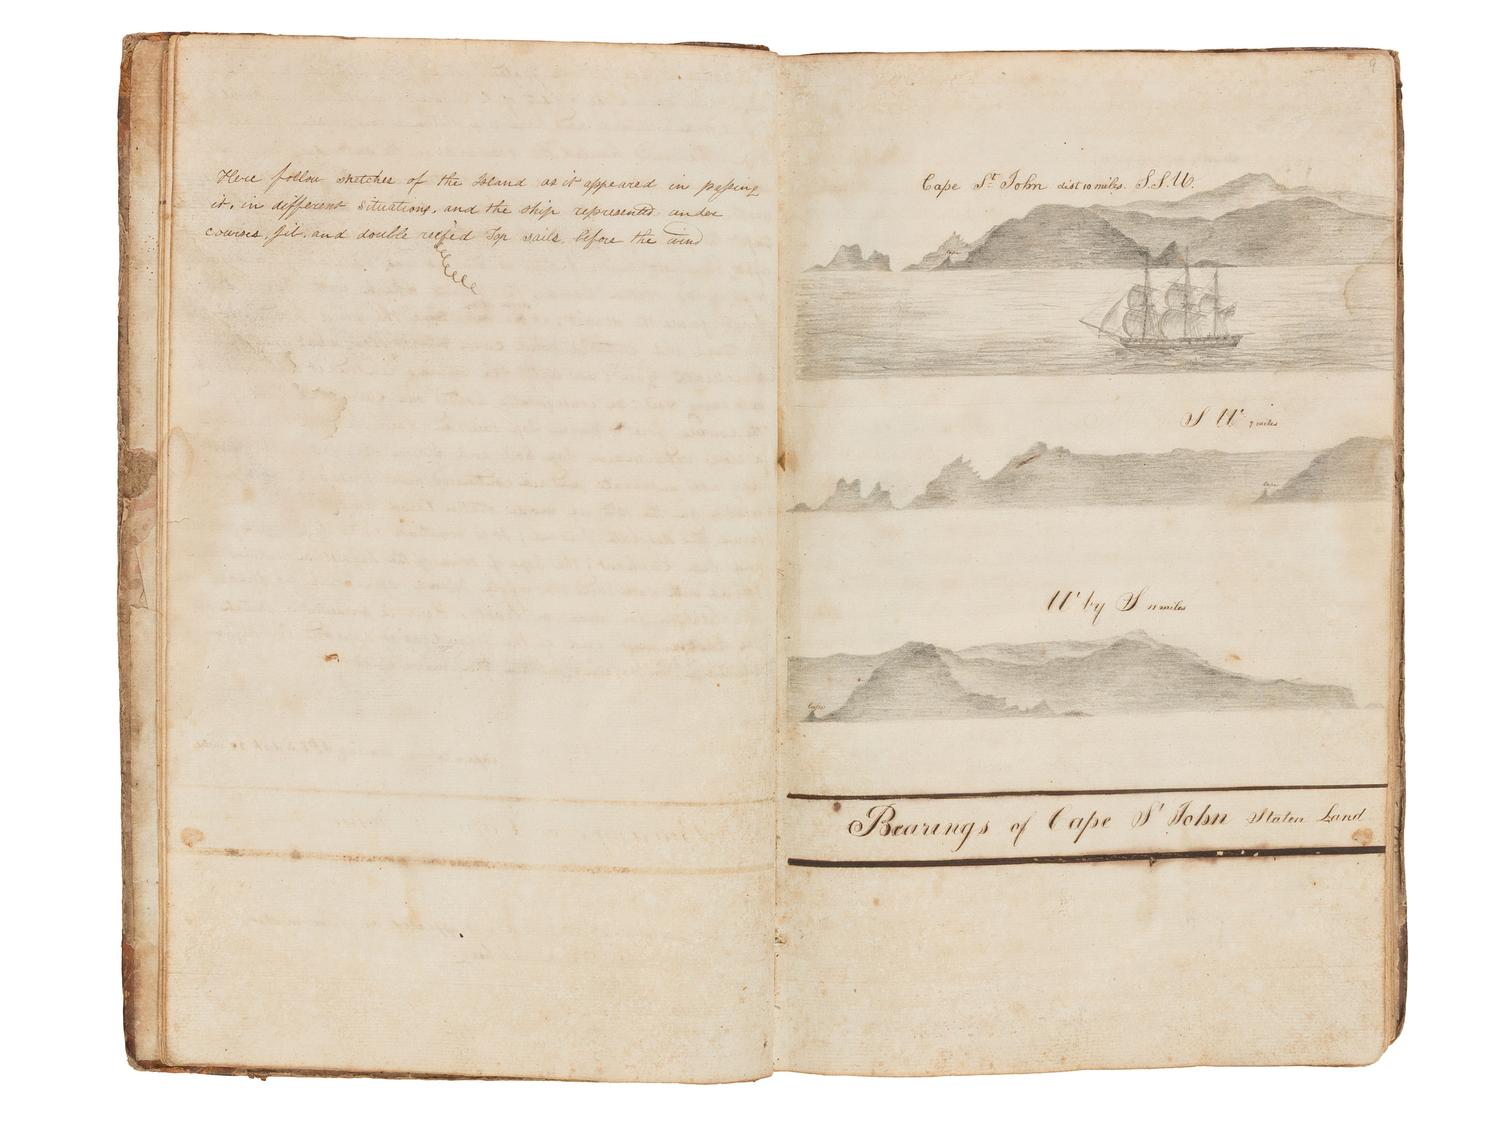 Here follow sketches of the Island as it appeared in passing
it, in different situations, and the ship represented under
courses, jib, and double reefed Top sails, before the wind
9
Cape St John dist 10 miles. S.S.W.
Cape
S W 7 miles
Cape
W by S 11 miles
Cape
Bearings of Cape St John Staten Land